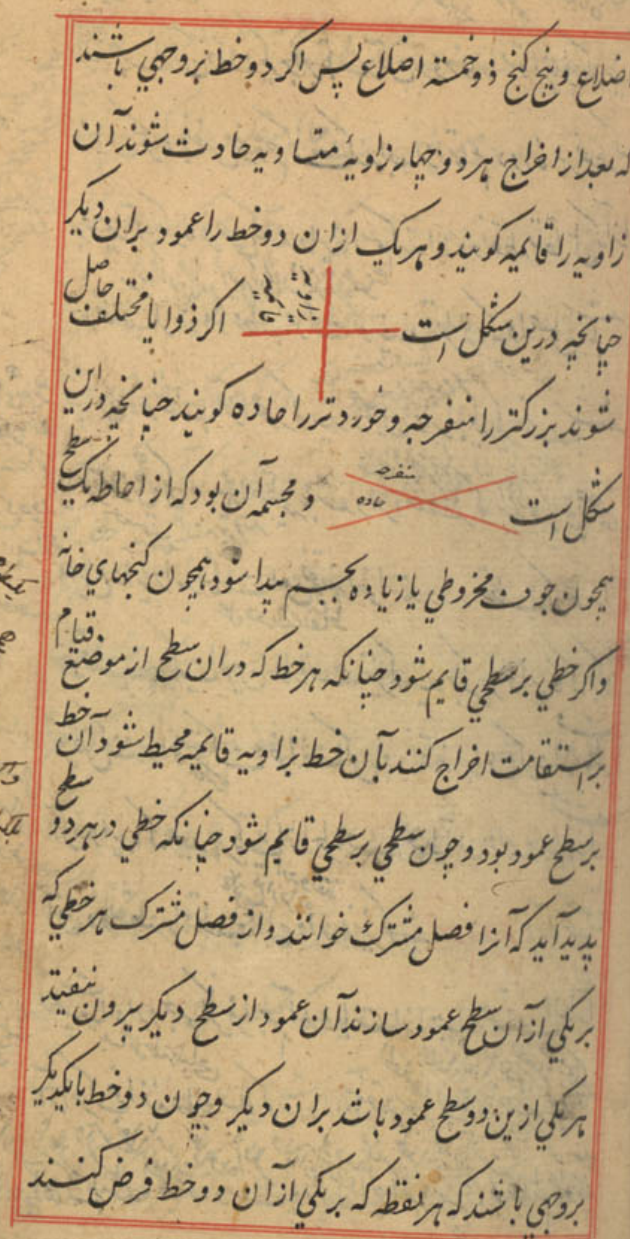 اضلاع و پنج کنج ذو خمسة اضلاع پس اکر دو خط بروجهي باشند
که بعد از اخراج هر دو چهار زاویهٔ متساویه حادث شوند آن
زاویه را قائمیه کویند و هر یک ازان دو خط را عمود بران دیکر
چنانچه درین شکل است زاویه قایمه اکر ذوایا مختلف حاصل
شوند بزرکتر را منفرجه و خوردتر را حاده کویند چنانچه دراین
شکل است منفرجه حاده و مجسمه آن بود که از احاطه یک سطح
همچون جوف مخروطي یا زیاده بجسم پیدا شود همچون کنجهاي خانه
و اکر خطي بر سطحي قایم شود چنانکه هر خط که دران سطح از موضع قیام
بر استقامت اخراج کنند بآن خط بزاویه قایمیه محیط شود آن خط
بر سطح عمود بود و چون سطحي بر سطحي قایم شود چنانکه خطي در هر دو سطح
پدید آید که آنرا فصل مشترک خوانند و از فصل مشترک هر خطي که
بر یکي ازآن سطح عمود سازند آن عمود از سطح دیکر بیرون نیفتد
هر یکي ازین دو سطح عمود باشد بران دیکر و چون دو خط با یکدیکر
بروجهي باشند که هر نقطه که بر یکي ازآن دو خط فرض کنند